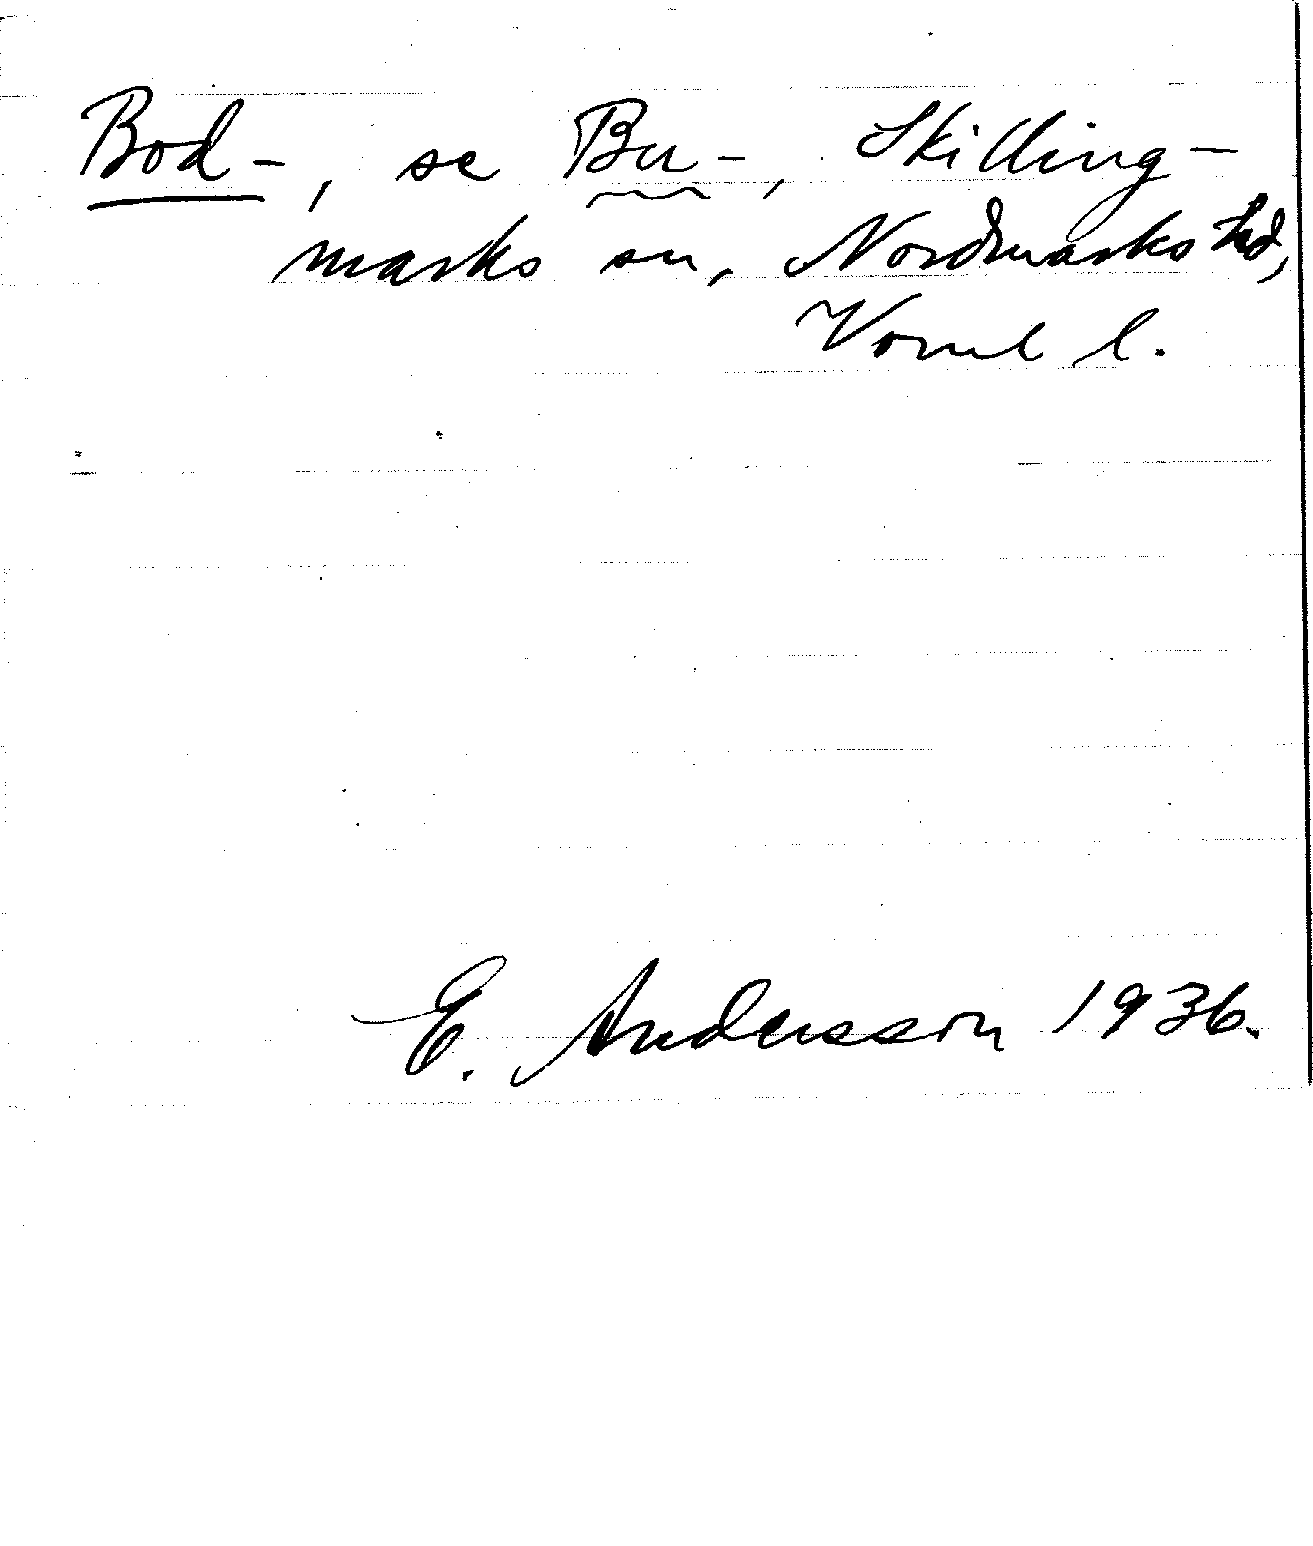 Bod-, se Bu-, Skilling-
marks sn, Nordmarks hd,
Värml l.
E. Andersson 1936.